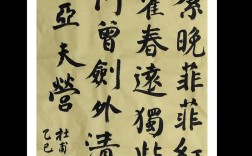 絮晚菲菲紅
雀春遠獨柴
何曾劍外清
亞夫營
杜甫
乙巳